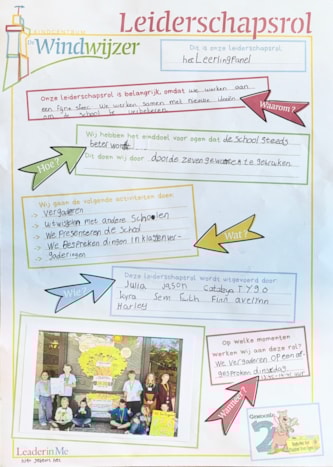 Leiderschapsrol
KINDCENTRUM
De Windwijzer
Dit is onze leiderschapsrol:
het Leerlingpanel
Onze leiderschapsrol is belangrijk, omdat we werken aan
een fijne sfeer. We werken samen met nieuwe ideeën
om de school te verbeteren.
Waarom?
Wij hebben het einddoel voor ogen dat de school steeds
beter wordt.
Dit doen wij door door de zeven gewoontes te gebruiken.
Hoe?
Wij gaan de volgende activiteiten doen:
-> Vergaderen
-> Uitwisselen met andere Schoolen
-> We Presenteren de School
-> We Bespreken dingen in klassenver-
gaderingen
Wat?
Deze leiderschapsrol wordt uitgevoerd door:
Julia Jason Cataleya Tygo
Kyra Sem Finn
Harley
Wie?
Op welke momenten
werken wij aan deze rol?
We vergaderen op een af-
gesproken dinsdag
Wanneer?
Gewoonte
2
Leader in Me